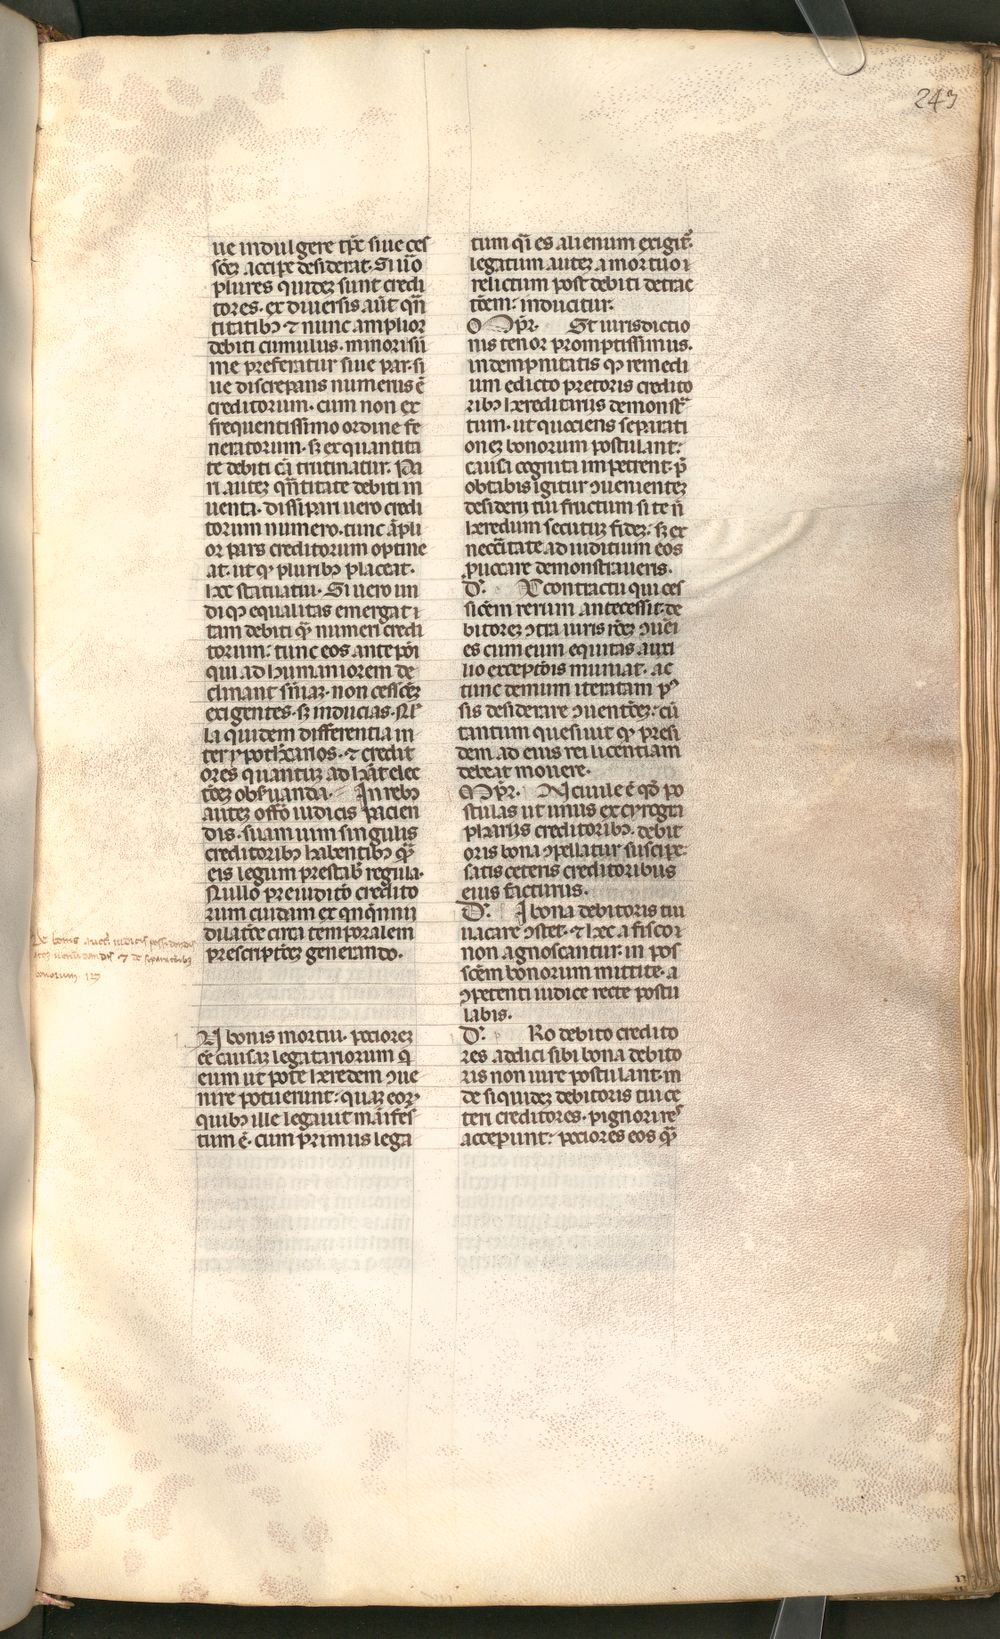 243
ue indulgere tp̄e siue ces
sōez accipe desiderat. Si uo
plures quidez sunt credi
tores. ex diuersis aūt qn̄
titatibꝫ ⁊ nunc amplior
debiti cumulus. minori sū
me preferatur siue par. si
ue discrepans numerus ē
creditorum. cum non ex
frequentissimo ordine fe
neratorum. sꝫ ex quantita
te debiti cā trutinatur. Pa
ri autez qn̄titate debiti in
uenta. dissipari uero credi
torum numero. tunc āpli
or pars creditorum optine
at. ut qꝫ pluribꝫ placeat.
hec statuatū. Si uero un
diqꝫ equalitas emergat ı
tam debiti qꝫ numeri credi
torum: tunc eos ante pōi
qui ad humaniorem de
clinant sn̄iaz. non cessōez
exigentes. sꝫ inducias. Nl
la quidem differentia in
ter ypothecarios. ⁊ credit
ores quantuz ad hāt elec
tōez obseruanda. In rebꝫ
autez offō iudicis pacien
dis. suam uim singulis
creditoribꝫ habentibꝫ qꝫ
eis legum prestabit regula.
Nullo preiuditō credito
rum cuidam ex qnqnnii
dilatōe circa temporalem
prescriptōez generando.
De bonis auct. iudicis poss. dendis
⁊ de separatōibꝫ
bonorum
N bonis mortui. pociorez
eē causaz legatariorum q̄
eum ut pote heredem ꝯue
nire potuerunt: quaz eorꝫ
quibꝫ ille legauit māifes
tum ē. cum primus lega
tum qī es alienum exigit̄.
legatum autez a mortuo ı
relictum post debiti detrac
tōem: inducitur.
Ompr̄. St iurisdictio
nis tenor promptissimus.
indempnitatis qꝫ remedi
um edicto pretoris credito
ribꝫ hereditariis demonstr̄
tum. ut quociens separati
onez bonorum postulant:
causa cognita impetrent. p̄
obtabis igitur ꝯuenientez
desiderii tui fructum si te n̄
heredum secutuz fidez: sꝫ ex
necc̄itate ad iuditium eos
puocare demonstraueris.
D. X contractu qui ces
sioēm rerum antecessit. de
bitorez ꝯtra iuris rōez ꝯuēi
es cum eum equitas auxi
lio exceptōis muniat. ac
tunc demum iteratam pꝰ
sis desiderare ꝯuentōez: cū
tantum quesiuit qꝫ presi
dem ad eius rei licentiam
debeat mouere.
Ompr̄. Nciuile ē qd̄ po
stulas ut unus ex cyrogra
phariis creditoribꝫ. debit
oris bona ꝯpellatur suscipe:
satis ceteris creditoribus
eius facturus.
D. I bona debitoris tui
uacare ꝯstet. ⁊ hec a fisco ı
non agnoscantur. in pos
sōem bonorum mittite. a
ꝯpetenti iudice recte postu
labis.
D. Ro debito credito
res addici sibi bona debito
ris non iure postulant. in
de si quidez debitoris tui ce
teri creditores. pignori res
acceperunt: pociores eos qꝫ